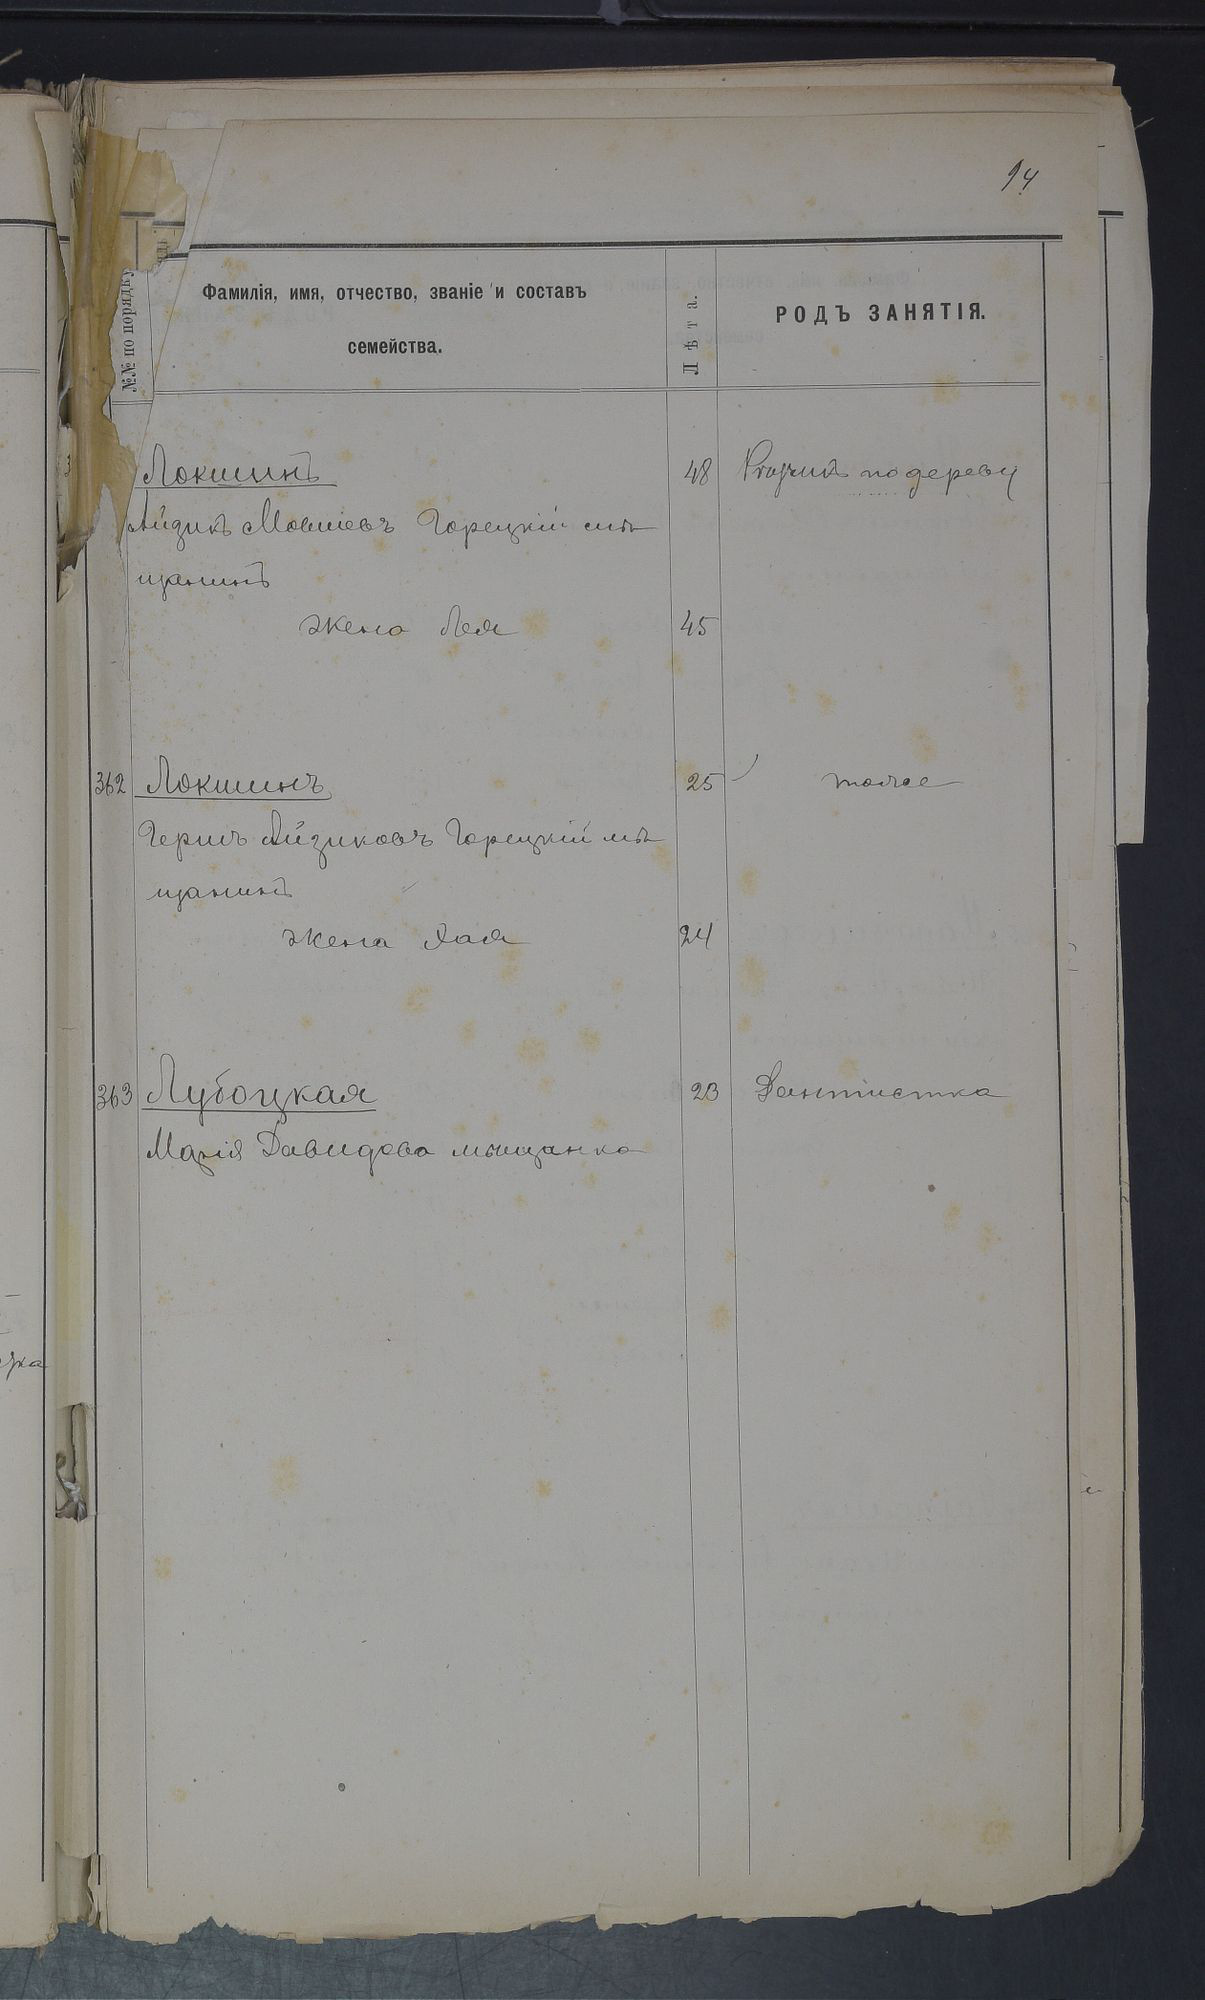 94
№№ по порядку
Фамилія, имя, отчество, званіе и составъ
семейства.
Лѣта.
РОДЪ ЗАНЯТІЯ.
Локшинъ 48 по дереву
Айзикъ Мовшевъ Горецкій мѣ
щанинъ
жена Лея 45
362 Локшинъ 25 тоже
Гершъ Айзиковъ Горецкій мѣ
щанинъ
жена Хая 24
363 Лубоцкая 23 Дантистка
Марія Давидова мѣщанка